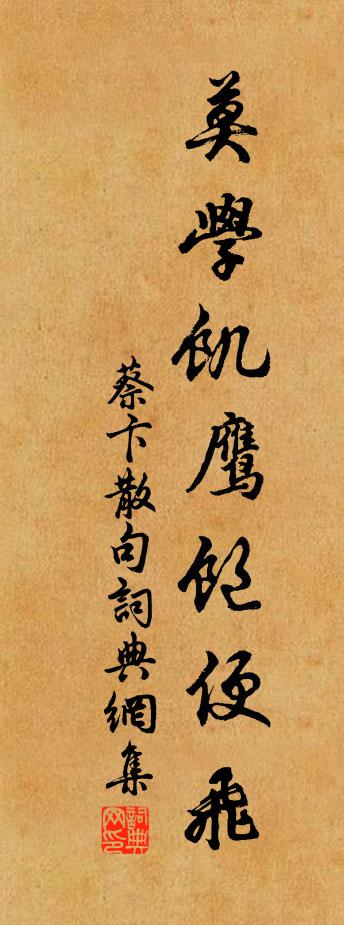 莫學飢鷹飽便飛
蔡卞散句詞典網集
詞典网印